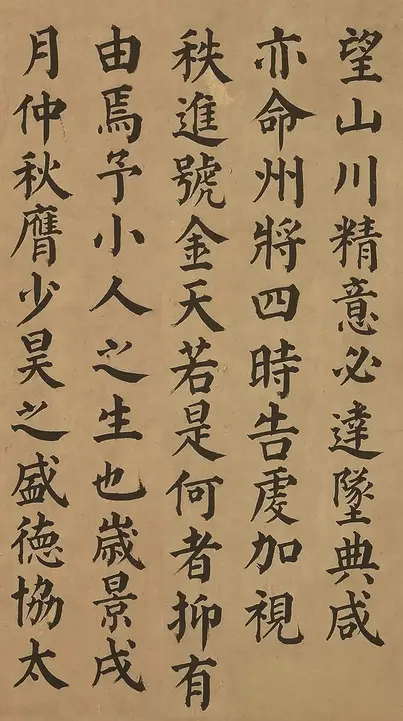 望山川精意必達墜典咸
亦命州將四時告虔加視
秩進號金天若是何者抑有
由焉予小人之生也歲景戌
月仲秋膺少昊之盛德協太